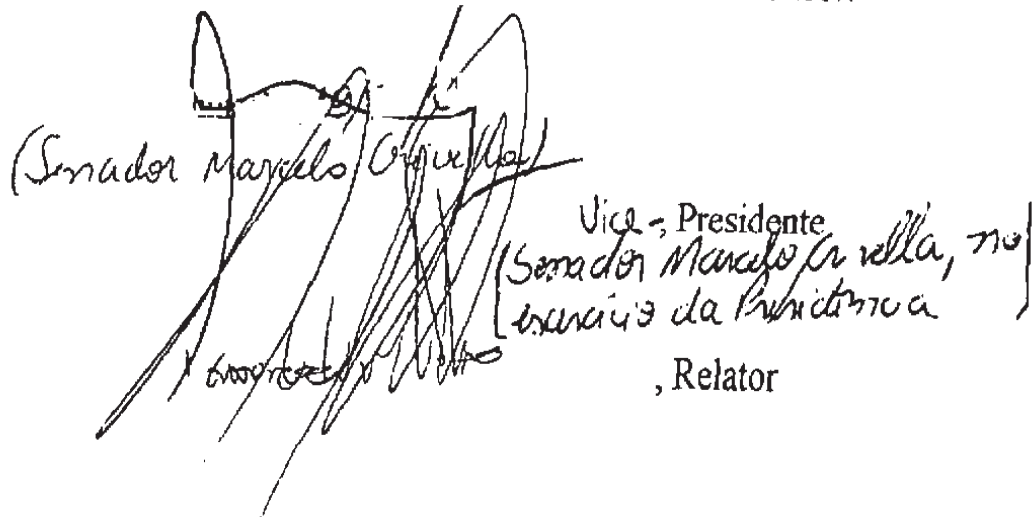 (Senador Marcelo Crivella)
Vice-, Presidente
(Senador Marcelo Crivella, no
exercício da Presidência)
, Relator